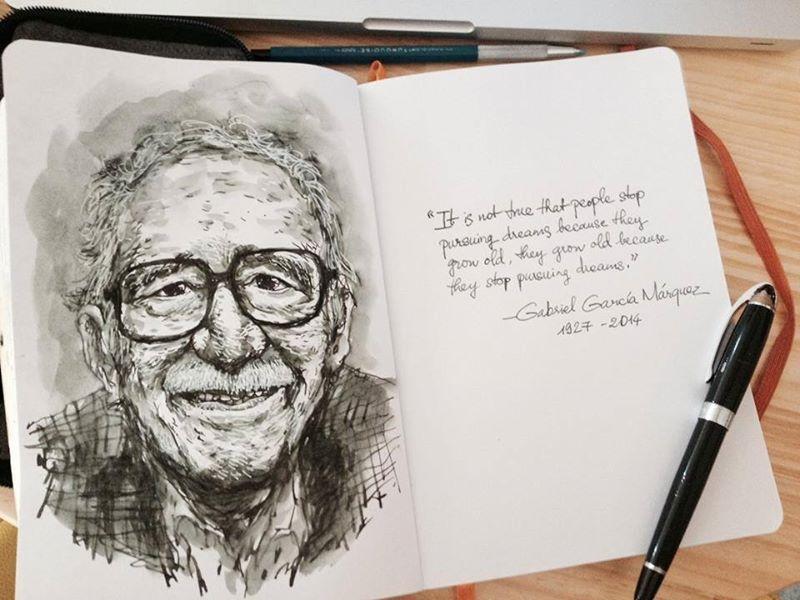 “It is not true that people stop
pursuing dreams because they
grow old, they grow old because
they stop pursuing dreams.”
- Gabriel García Márquez
1927 - 2014